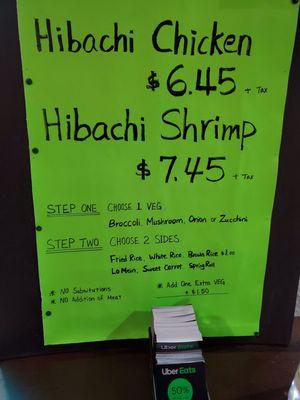 Hibachi Chicken
$6.45 + Tax
Hibachi Shrimp
$7.45 + Tax
STEP ONE CHOOSE 1 VEG
Broccoli, Mushroom, Onion or Zucchini
STEP TWO CHOOSE 2 SIDES
Fried Rice, White Rice, Brown Rice $1.00
Lo Mein, Sweet Carrot, Spring Roll
* NO Substitutions
* NO Addition of Meat
* Add One Extra VEG
+ $1.50
Uber Eats
Uber Eats
50%